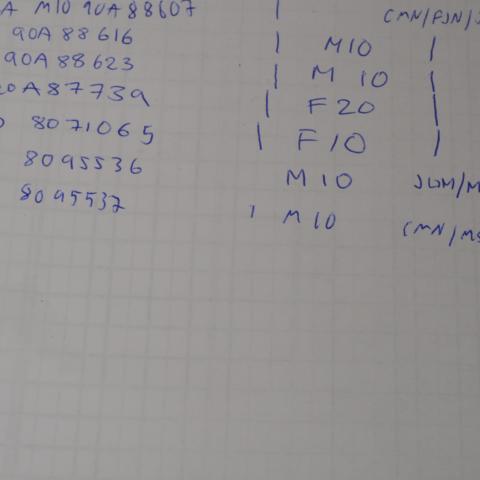 A M10 90A88607 | CMN/FJN/
90A88616 | M10 |
90A88623 | M 10 |
0A87739 | F20 |
8071065 | F10 |
8095536 M10 JWM/M
8095537 ı M10 CMN/MS